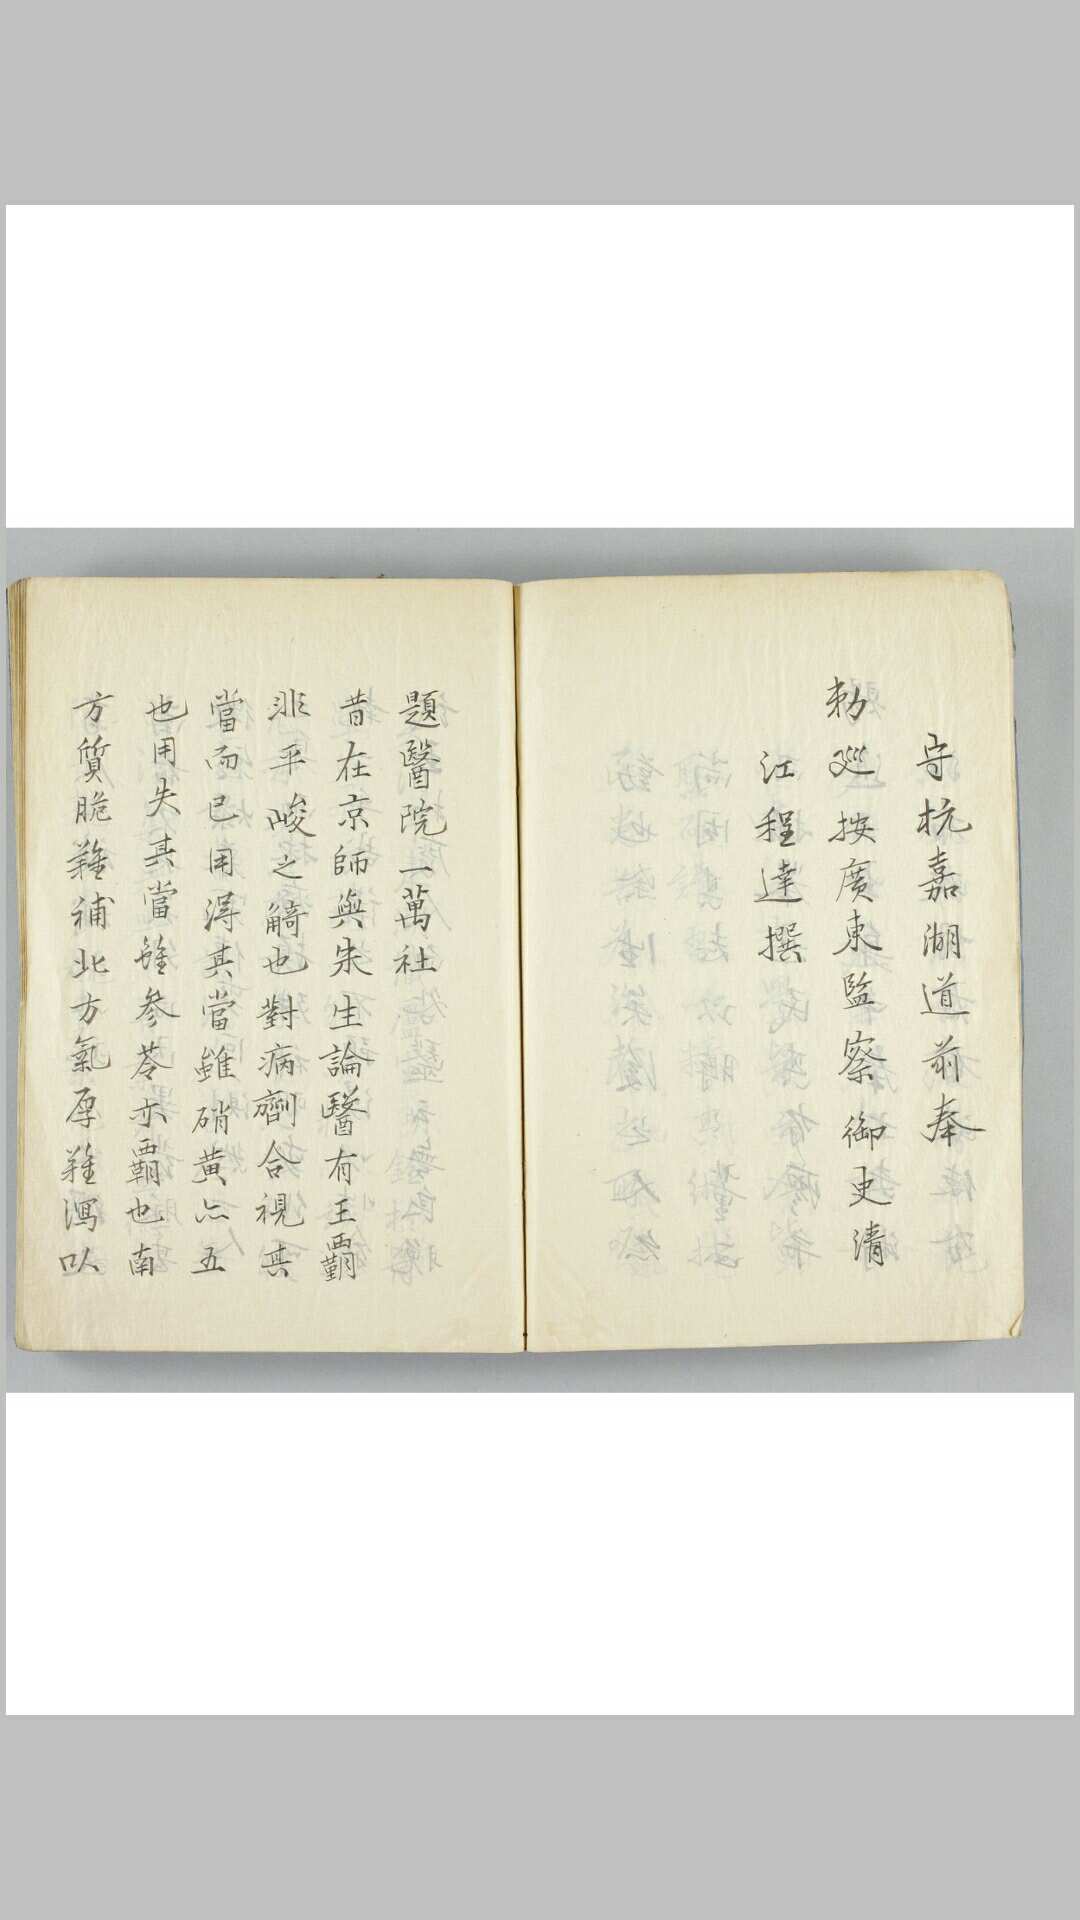 守杭嘉湖道前奉
勅巡按廣東監察御史清
江程達撰
題醫院一萬社
昔在京師與朱生論醫有王覇
非平峻之觭也對病劑合視其
當而已用淂其當雖硝黃亦王
也用失其當雖參苓亦覇也南
方質脆難補北方氣厚難瀉以